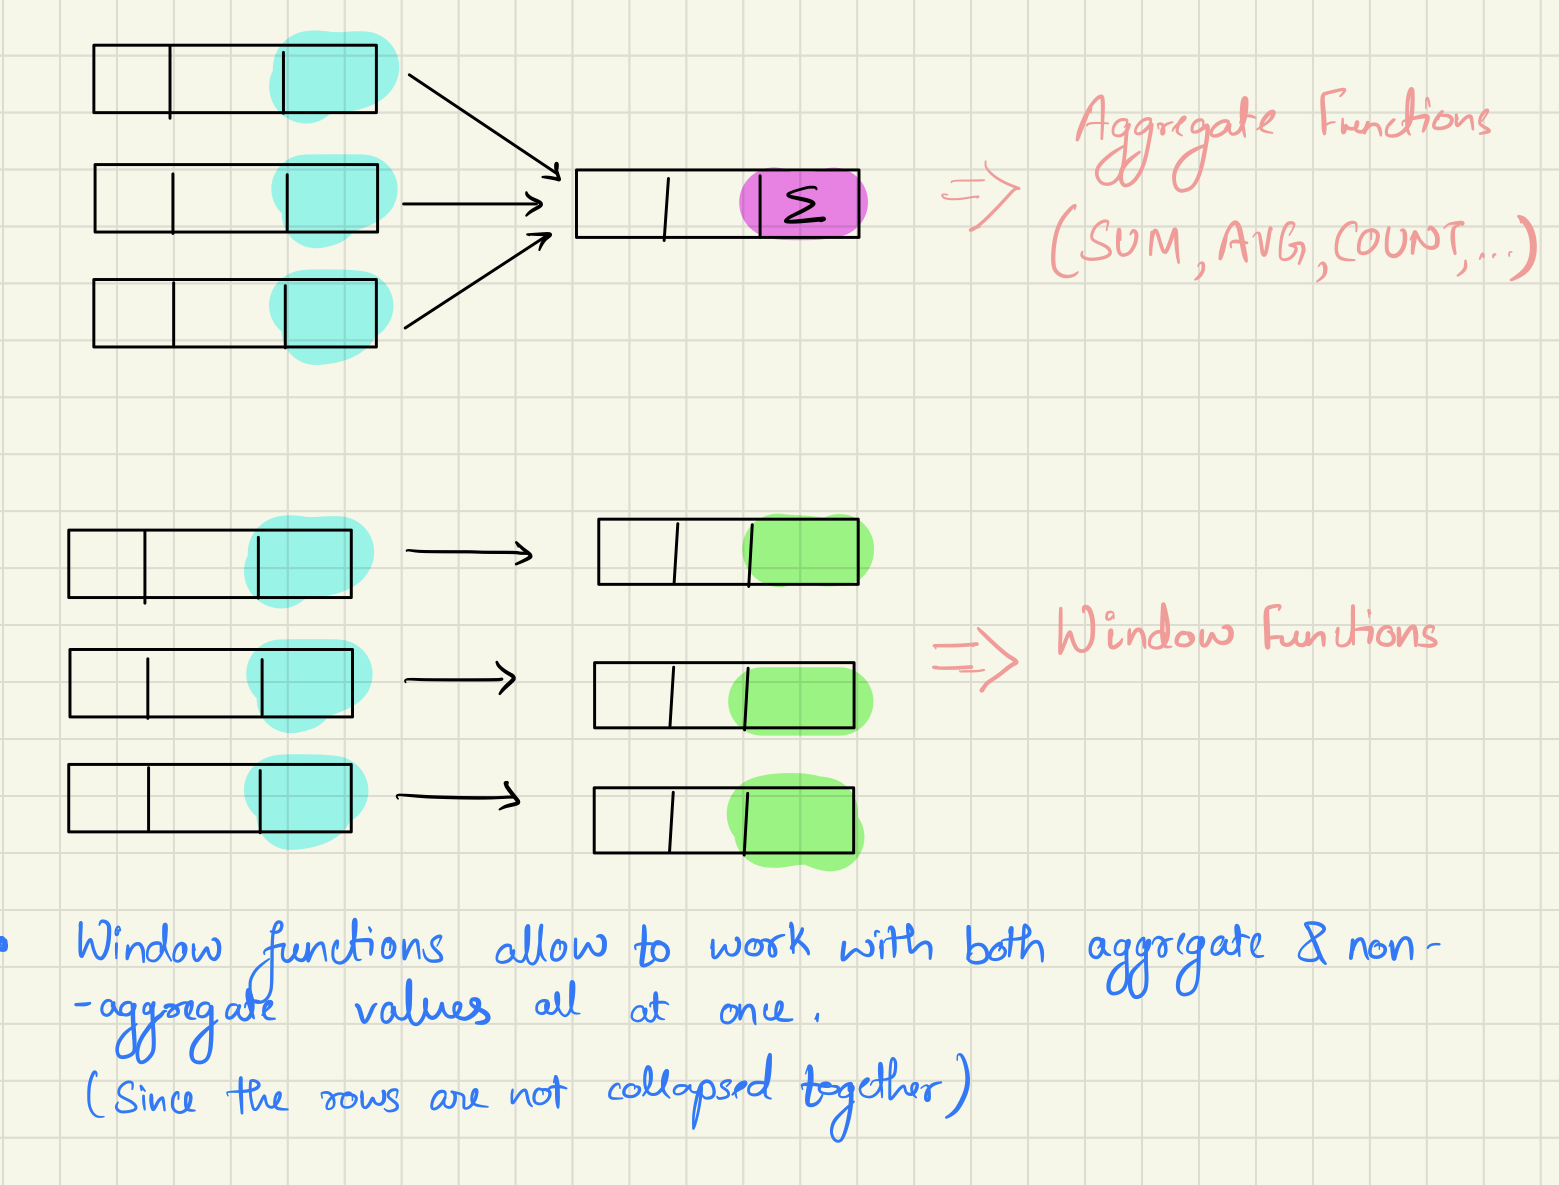 Σ
Aggregate Functions
(SUM, AVG, COUNT, ...)
Window Functions
Window functions allow to work with both aggregate & non-
-aggregate values all at once.
(Since the rows are not collapsed together)